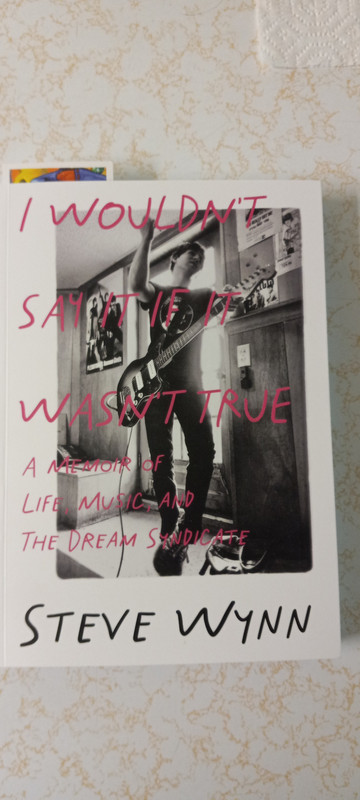 I WOULDN'T
SAY IT IF IT
WASN'T TRUE
A MEMOIR OF
LIFE, MUSIC, AND
THE DREAM SYNDICATE
STEVE WYNN